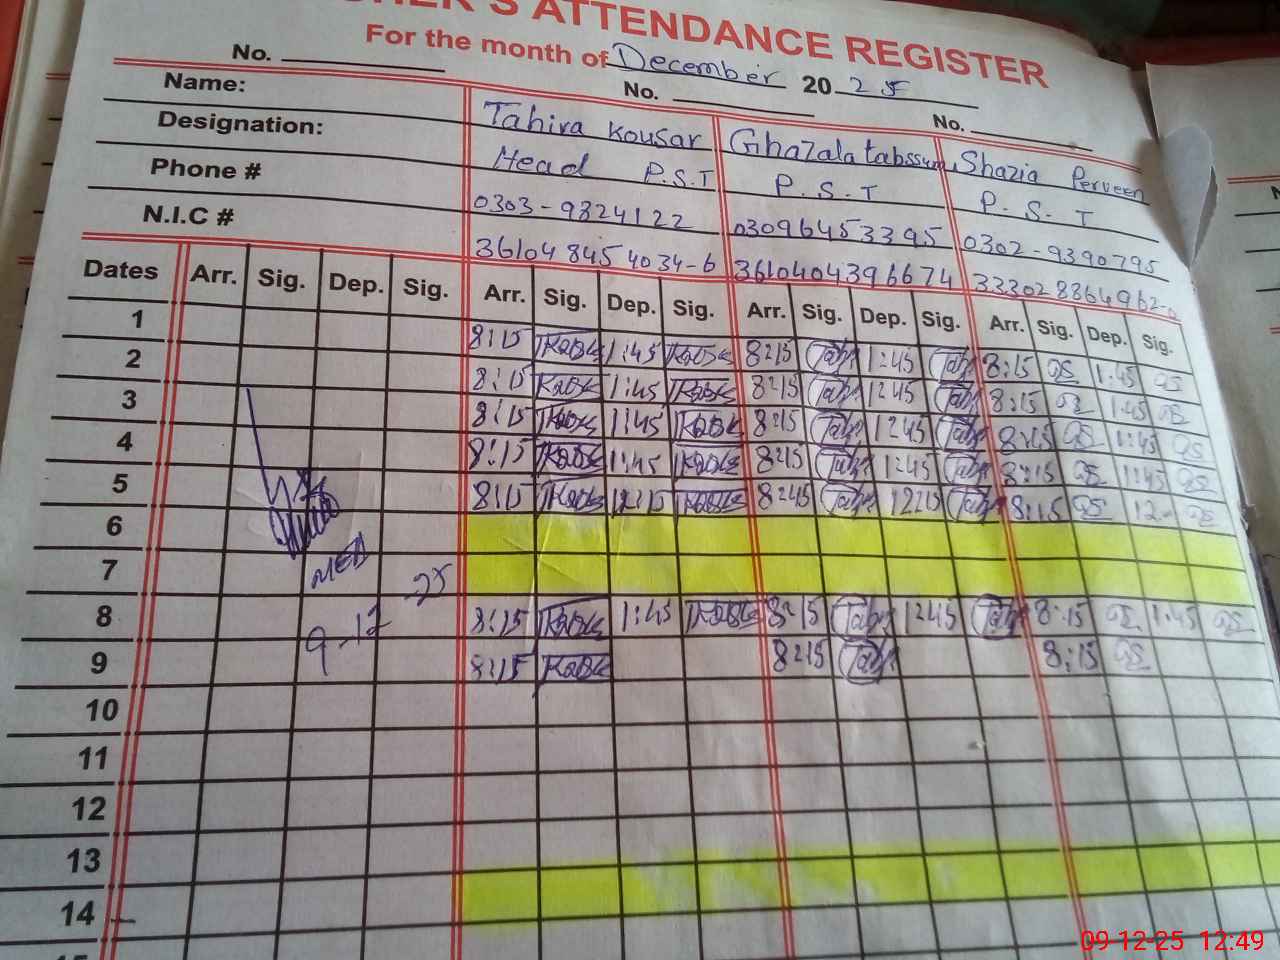 ER'S ATTENDANCE REGISTER
For the month of December 20 25
No. No. No.
Name: Tahira Kousar Ghazala tabssum Shazia Perveen
Designation: Head P.S.T P.S.T P.S.T
Phone # 0303-9824122 03096453395 0302-9390795
N.I.C # 36104845 4034-6 3610404396674
Dates Arr. Sig. Dep. Sig. Arr. Sig. Dep. Sig. Arr. Sig. Dep. Sig. Arr. Sig. Dep. Sig.
1 8:15 1:45 8:15 Tabs 1:45 Tabs 8:15 1:45
2 8:15 1:45 8:15 Tabs 1:45 Tabs 8:15 1:45
3 8:15 1:45 8:15 Tabs 1:45 Tabs 8:15 1:45
4 8:15 1:45 8:15 Tabs 1:45 Tabs 8:15 1:45
5 8:15 12:15 Tabs 12:15 Tabs 8:15
6
7
8 8:15 1:45 8:15 Tabs 1:45 Tabs 8:15 1:45
9 8:15 8:15 Tabs 8:15
9-12-25
10
11
12
13
14
15
09-12-25 12:49